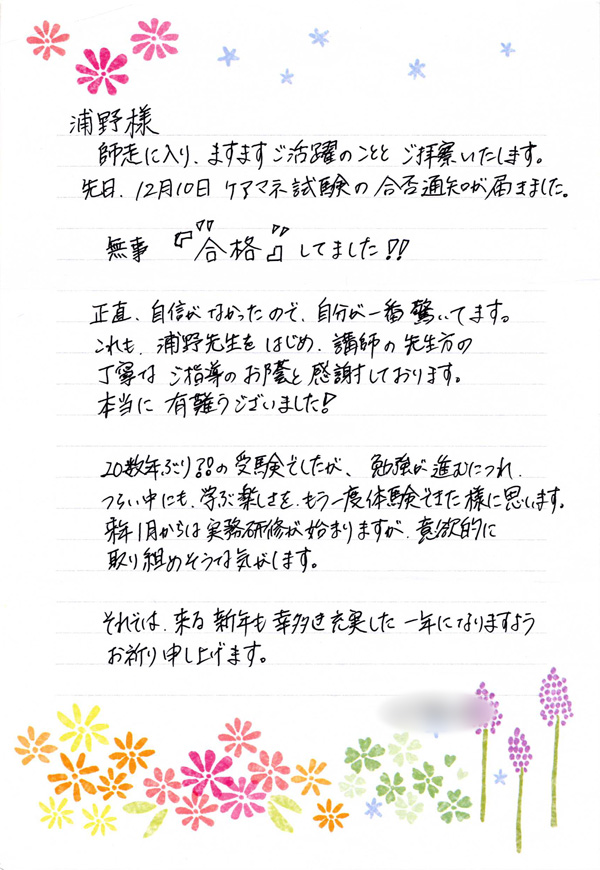 浦野様
師走に入り、ますますご活躍のことと ご拝察いたします。
先日、12月10日 ケアマネ試験の 合否通知が届きました。
無事 『合格』してました!!
正直、自信がなかったので、自分が一番驚いてます。
これも、浦野先生をはじめ、講師の先生方の
丁寧な ご指導のお陰と 感謝しております。
本当に 有難うございました!
20数年ぶり??の受験でしたが、勉強が進むにつれ、
つらい中にも、学ぶ楽しさを、もう一度体験できた様に思います。
来年1月からは実務研修が始まりますが、意欲的に
取り組めそうな気がします。
それでは、来る新年も幸多き充実した一年になりますよう
お祈り申し上げます。